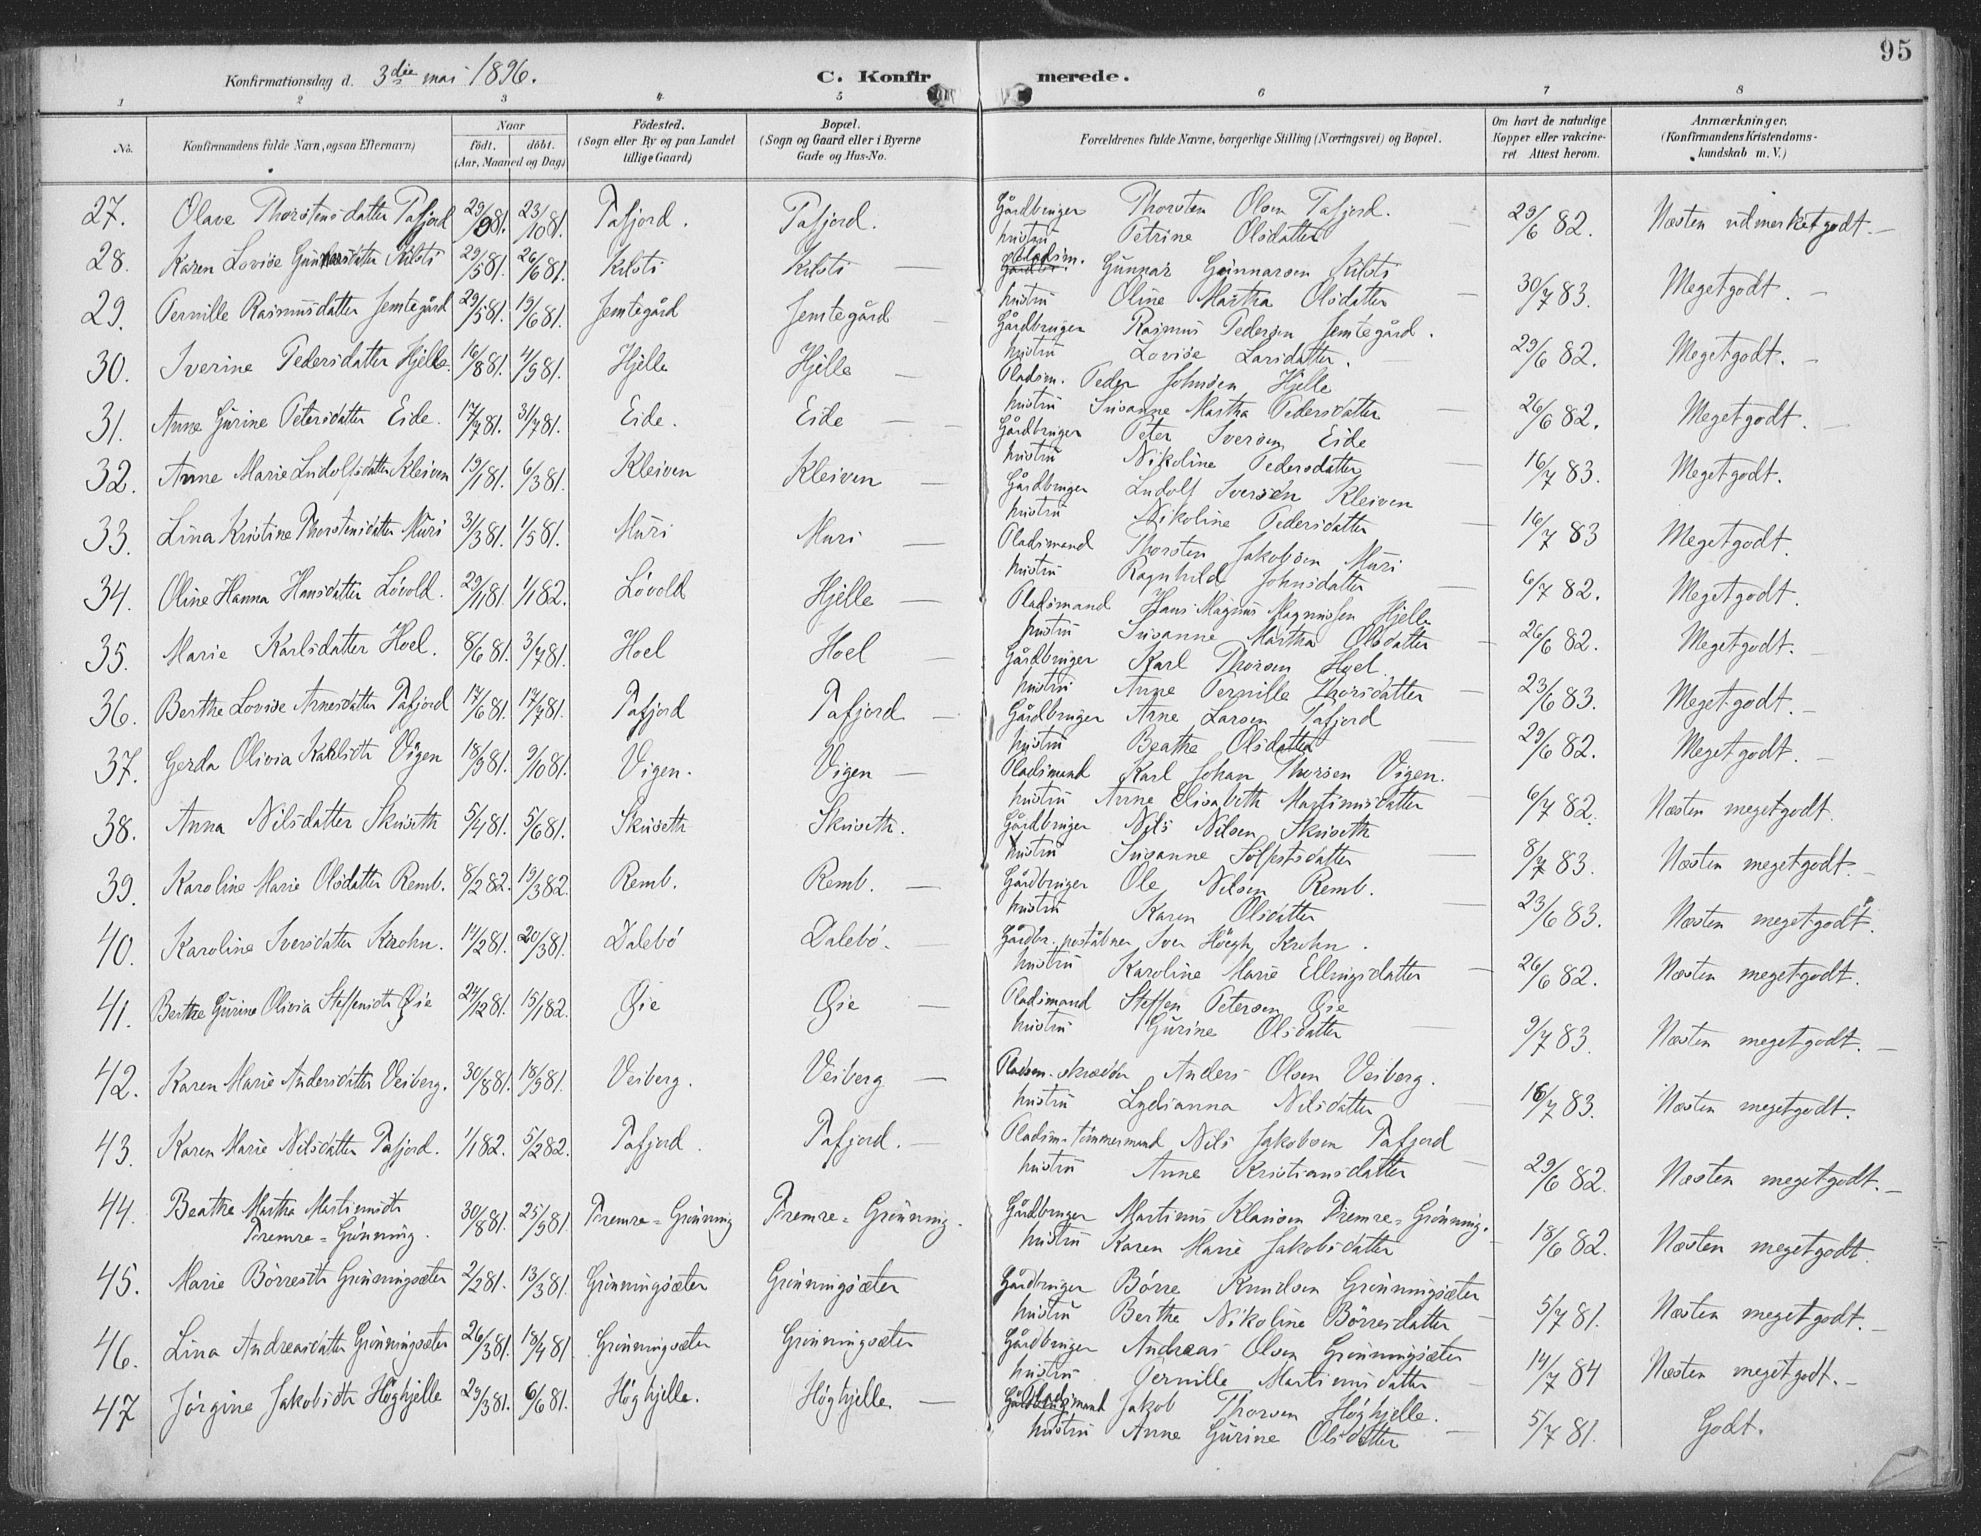 95
Konfirmationsdag d. 3die mai 1896. C. Konfirmerede.
1 2 3 4 5 6 7 8
No. Konfirmandens fulde Navn, ogsaa Efternavn) Naar födt. döbt. (Aar, Maaned og Dag) Födested. (Sogn eller By og paa Landet tillige Gaard) Bopæl. (Sogn og Gaard eller i Byerne Gade og Hus-No. Forældrenes fulde Navne, borgerlige Stilling (Næringsvei) og Bopæl. Om havt de naturlige Kopper eller vakcineret Attest herom. Anmærkninger. (Konfirmandens Kristendomskundskab m. V.)
27. Olave Thorstensdatter Tafjord 29/9 81. 23/10 81. Tafjord. Tafjord. Gårdbruger Thorsten Olsen Tafjord. 23/6 82. Næsten udmerket godt. —
hustru Petrine Olsdatter
28. Karen Lovise Gunnarsdatter Kilsti 29/5 81. 26/6 81. Kilsti Kilsti — Pladsm. Gunnar Gunnarsen Kilsti 30/7 83. Meget godt. —
hustru Oline Martha Olsdatter
29. Pernille Rasmusdatter Jemtegård 29/5 81. 19/6 81. Jemtegård Jemtegård — Gårdbruger Rasmus Pedersen Jemtegård. 29/6 82. Meget godt. —
hustru Lovise Larsdatter.
30. Iverine Pedersdatter Hjelle. 16/8 81. 4/9 81. Hjelle Hjelle — Pladsm. Peder Johnsen Hjelle 26/6 82. Meget godt. —
hustru Susanne Martha Pedersdatter
31. Anne Gurine Petersdatter Eide. 17/7 81. 31/7 81. Eide. Eide — Gårdbruger Peter Iversen Eide 16/7 83. Meget godt.
hustru Nikoline Pedersdatter
32. Anne Marie Ludolfsdatter Kleiven 19/1 81. 6/3 81. Kleiven Kleiven — Gårdbruger Ludolf Iversen Kleiven 16/7 83 Meget godt.
hustru Nikoline Pedersdatter
33. Lina Kristine Thorstensdatter Muri 31/3 81. 1/5 81. Muri Muri — Pladsmand Thorsten Jakobsen Muri 6/7 82. Meget godt.
hustru Ragnhild Johnsdatter
34. Oline Hanna Hansdatter Lövold. 29/11 81. 1/1 82. Lövold Hjelle — Pladsmand Hans Magnus Magnussen Hjelle 26/6 82. Meget godt. —
hustru Susanne Martha Olsdatter
35. Marie Karlsdatter Hoel. 8/6 81. 3/7 81. Hoel Hoel — Gårdbruger Karl Thorsen Hoel. 23/6 83. Meget godt. —
hustru Anne Pernille Thorsdatter
36. Berthe Lovise Arnesdatter Tafjord 17/6 81. 17/7 81. Tafjord Tafjord — Gårdbruger Arne Larsen Tafjord 29/6 82. Meget godt. —
hustru Beathe Olsdatter
37. Gerda Olivia Karlsdtr Vigen 18/9 81. 9/10 81. Vigen. Vigen — Pladsmand Karl Johan Thorsen Vigen. 6/7 82. Næsten meget godt.
hustru Anne Elisabeth Martinusdatter
38. Anna Nilsdatter Skuseth 5/4 81. 5/6 81. Skuseth Skuseth. Gårdbruger Nils Nilsen Skuseth 8/7 83. Næsten meget godt. —
hustru Susanne Solfestsdatter
39. Karoline Marie Olsdatter Remb. 8/2 82. 19/3 82. Remb. Remb. — Gårdbruger Ole Nilsen Remb. 23/6 83. Næsten meget godt.
hustru Karen Olsdatter
40. Karoline Iversdatter Krohn. 14/2 81. 20/3 81. Dalebö Dalebö. Gårdbr. poståbner Iver Höegh Krohn. 26/6 82. Næsten meget godt.
hustru Karoline Marie Ellingsdatter
41. Berthe Gurine Olivia Steffensdtr Øie 24/12 81. 15/1 82. Øie Øie — Pladsmand Steffen Petersen Øie 9/7 83. Næsten meget godt. —
hustru Gurine Olsdatter
42. Karen Marie Andersdatter Veiberg. 30/8 81. 18/9 81. Veiberg. Veiberg — Pladsm. skrædder Anders Olsen Veiberg. 16/7 83. Næsten meget godt.
hustru Lydianna Nilsdatter
43. Karen Marie Nilsdatter Tafjord. 1/1 82. 5/2 82. Tafjord. Tafjord. — Pladsm. tömmermand Nils Jakobsen Tafjord 29/6 82. Næsten meget godt. —
hustru Anne Kristiansdatter
44. Beathe Martha Martinusdtr Premre=Grönning. 30/8 81. 25/9 81. Premre=Grönning Premre=Grönning. Gårdbruger Martinus Klausen Premre=Grönning. 18/6 82. Næsten meget godt.
hustru Karen Marie Jakobsdatter
45. Marie Börresdtr Grönningsæter 2/2 81. 13/3 81. Grönningsæter Grönningsæter Gårdbruger Börre Knudsen Grönningsæter 5/7 81. Næsten meget godt. —
hustru Berthe Nikoline Börresdatter
46. Lina Andreasdatter Grönningsæter 26/3 81. 18/4 81 Grönningsæter Grönningsæter Gårdbruger Andreas Olsen Grönningsæter 14/7 84 Næsten meget godt. —
hustru Pernille Martinusdatter
47 Jörgine Jakobsdtr Höghjelle 29/3 81. 6/6 81. Höghjelle. Höghjelle. — Pladsmand Jakob Thorsen Höghjelle. 5/7 81. Godt.
hustru Anne Gurine Olsdatter